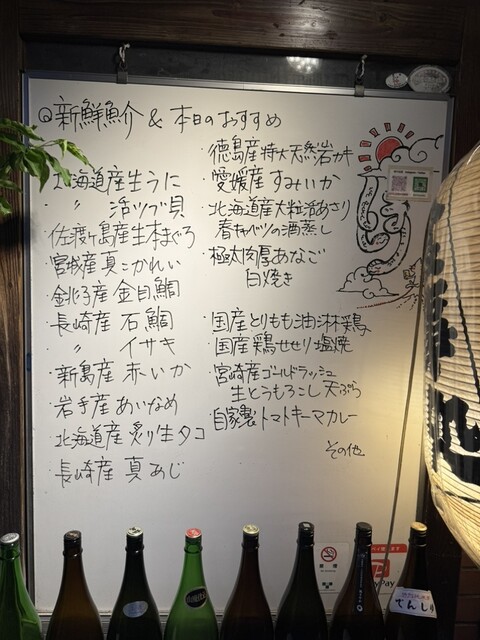 新鮮魚介 & 本日のおすすめ
北海道産生うに
〃 活ツブ貝
佐渡ヶ島産生本まぐろ
宮城産 真こかれい
銚子産 金目鯛
長崎産 石鯛
〃 イサキ
新島産 赤いか
岩手産 あいなめ
北海道産 炙り生タコ
長崎産 真あじ
徳島産特大天然岩ガキ
愛媛産 すみいか
北海道産大粒活あさり
春キャベツの酒蒸し
極太肉厚あなご
白焼き
国産とりもも油淋鶏
国産鶏せせり塩焼
宮崎産ゴールドラッシュ
生とうもろこし天ぷら
自家製トマトキーマカレー
その他
禁煙
PayPay
でんしゅ